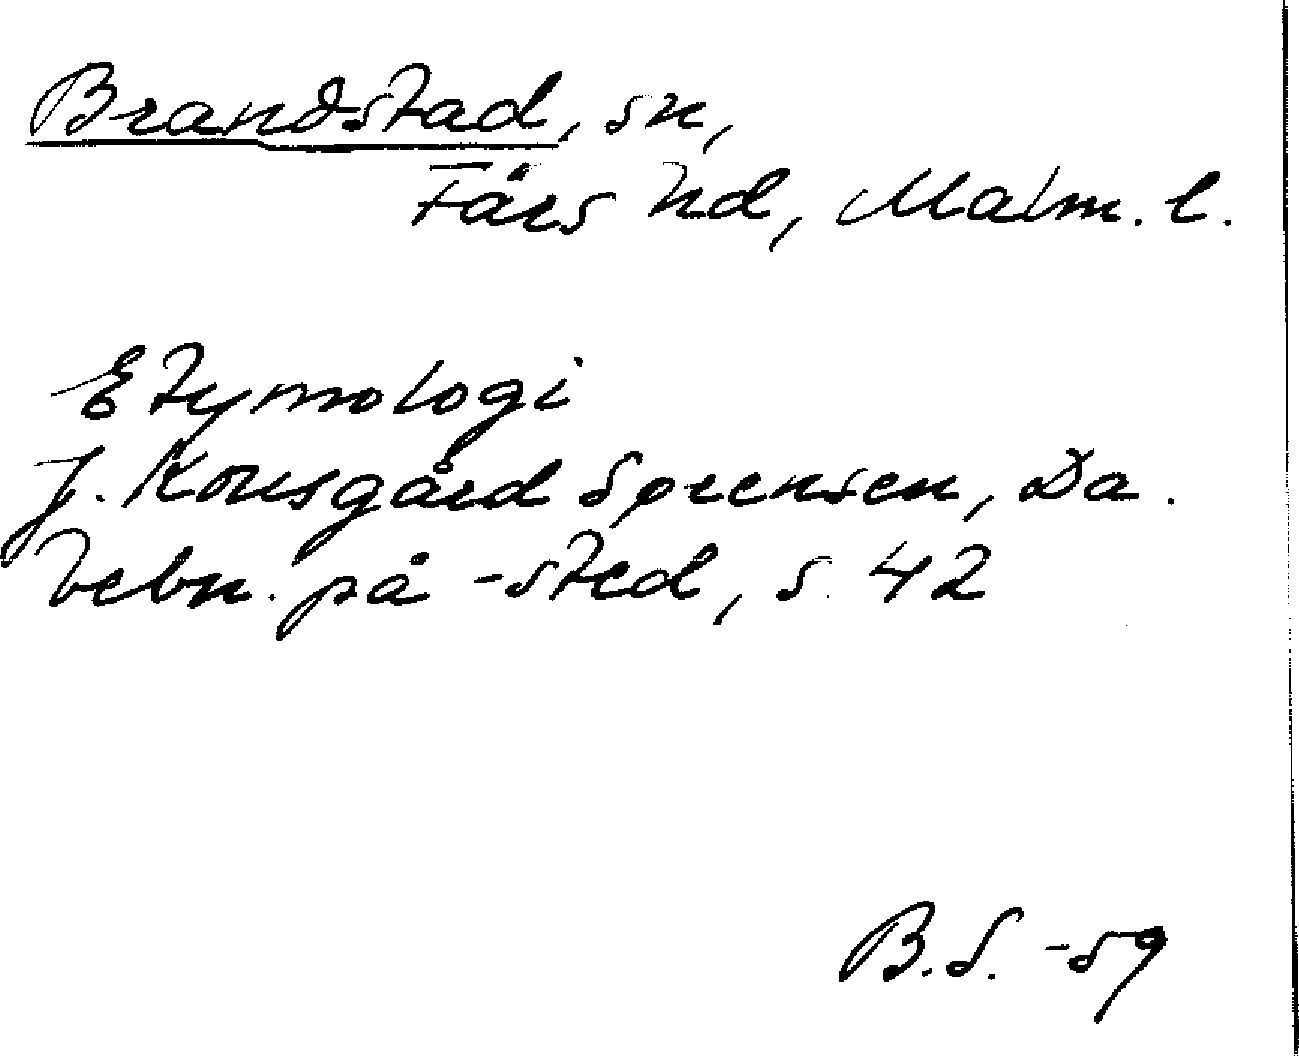 Brandstad, sn,
Färs hd, Malm. l.
Etymologi
J. Kousgård Sørensen, Da.
bebn. på -sted, s. 42
B.S. -59